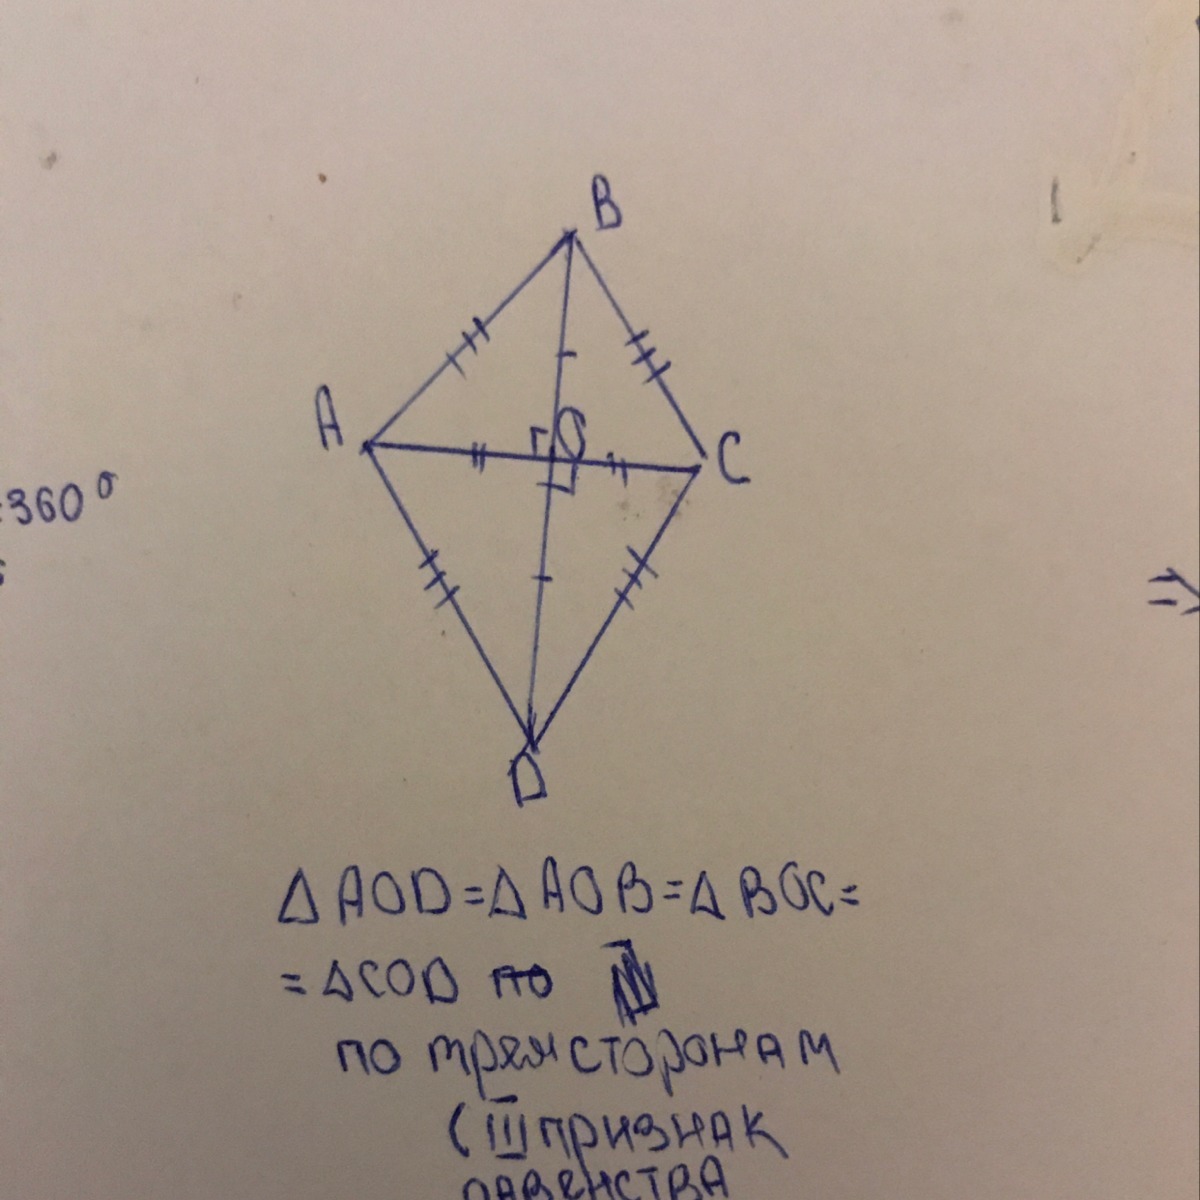 B
A
O
C
=360°
D
△AOD=△AOB=△BOC=
=△COD по
по трем сторонам
(III признак
равенства